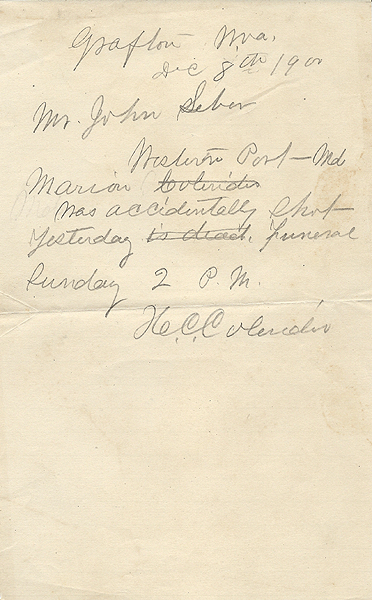 Grafton W.va.
Dec 8th 190
Mr. John Seber
Western Port - Md
Marion Colerider
was accidentally shot
yesterday is dead. funeral
Sunday 2 P.M.
H.C. Colerider